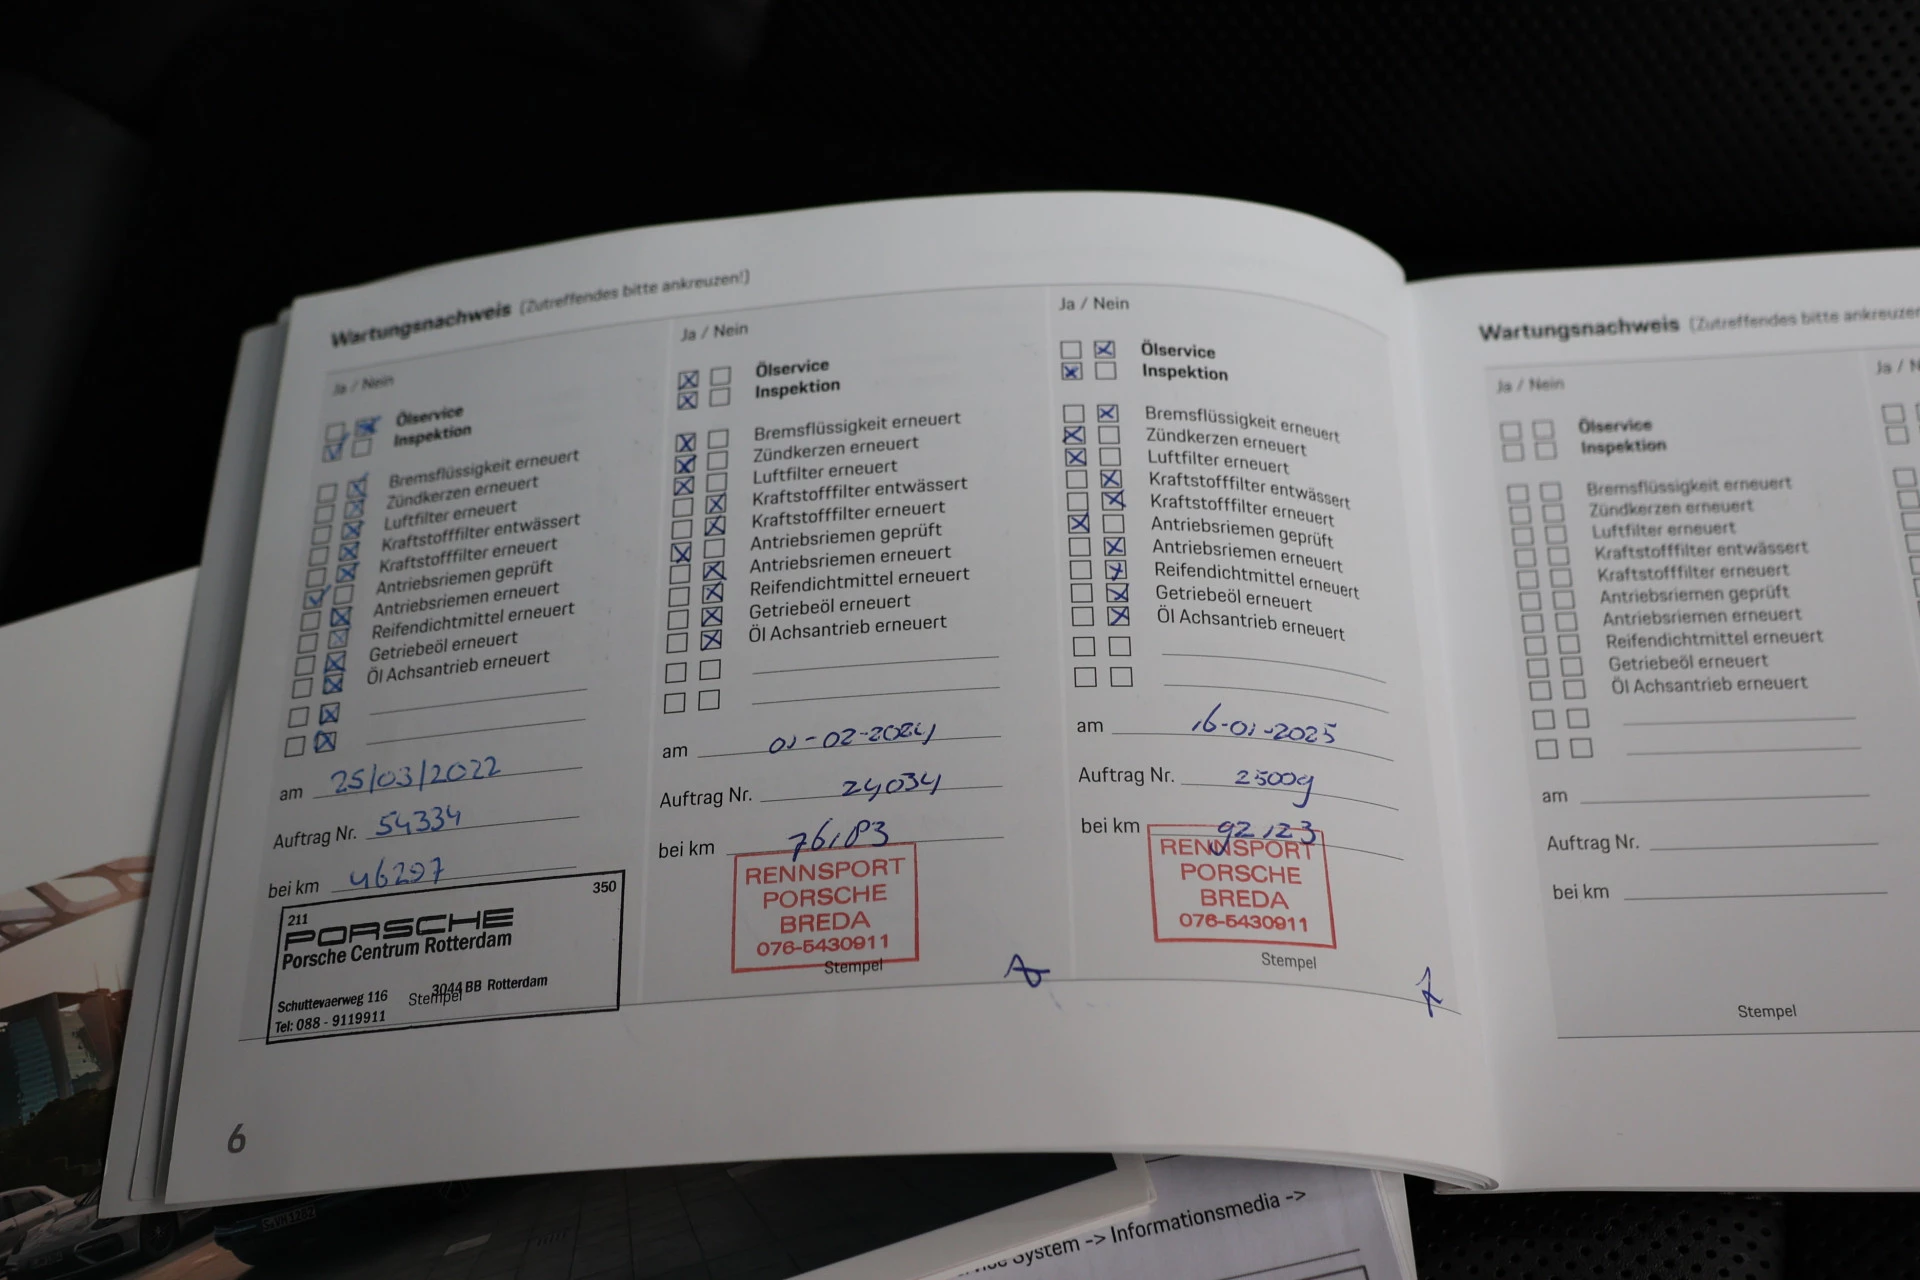 Wartungsnachweis (Zutreffendes bitte ankreuzen!)
Ja / Nein
Ölservice
Inspektion
Bremsflüssigkeit erneuert
Zündkerzen erneuert
Luftfilter erneuert
Kraftstofffilter entwässert
Kraftstofffilter erneuert
Antriebsriemen geprüft
Antriebsriemen erneuert
Reifendichtmittel erneuert
Getriebeöl erneuert
Öl Achsantrieb erneuert
am 25/03/2022
Auftrag Nr. 54334
bei km 46297
211 350
PORSCHE
Porsche Centrum Rotterdam
Schuttevaerweg 116 3044 BB Rotterdam
Tel: 088 - 9119911
Stempel
Ja / Nein
Ölservice
Inspektion
Bremsflüssigkeit erneuert
Zündkerzen erneuert
Luftfilter erneuert
Kraftstofffilter entwässert
Kraftstofffilter erneuert
Antriebsriemen geprüft
Antriebsriemen erneuert
Reifendichtmittel erneuert
Getriebeöl erneuert
Öl Achsantrieb erneuert
am 01-02-2024
Auftrag Nr. 24034
bei km 76183
RENNSPORT
PORSCHE
BREDA
076-5430911
Stempel
Ja / Nein
Ölservice
Inspektion
Bremsflüssigkeit erneuert
Zündkerzen erneuert
Luftfilter erneuert
Kraftstofffilter entwässert
Kraftstofffilter erneuert
Antriebsriemen geprüft
Antriebsriemen erneuert
Reifendichtmittel erneuert
Getriebeöl erneuert
Öl Achsantrieb erneuert
am 16-01-2025
Auftrag Nr. 25009
bei km 92123
RENNSPORT
PORSCHE
BREDA
076-5430911
Stempel
6
Wartungsnachweis (Zutreffendes bitte ankreuzen
Ja / Nein
Ölservice
Inspektion
Bremsflüssigkeit erneuert
Zündkerzen erneuert
Luftfilter erneuert
Kraftstofffilter entwässert
Kraftstofffilter erneuert
Antriebsriemen geprüft
Antriebsriemen erneuert
Reifendichtmittel erneuert
Getriebeöl erneuert
Öl Achsantrieb erneuert
am
Auftrag Nr.
bei km
Stempel
Ja / N
System -> Informationsmedia ->